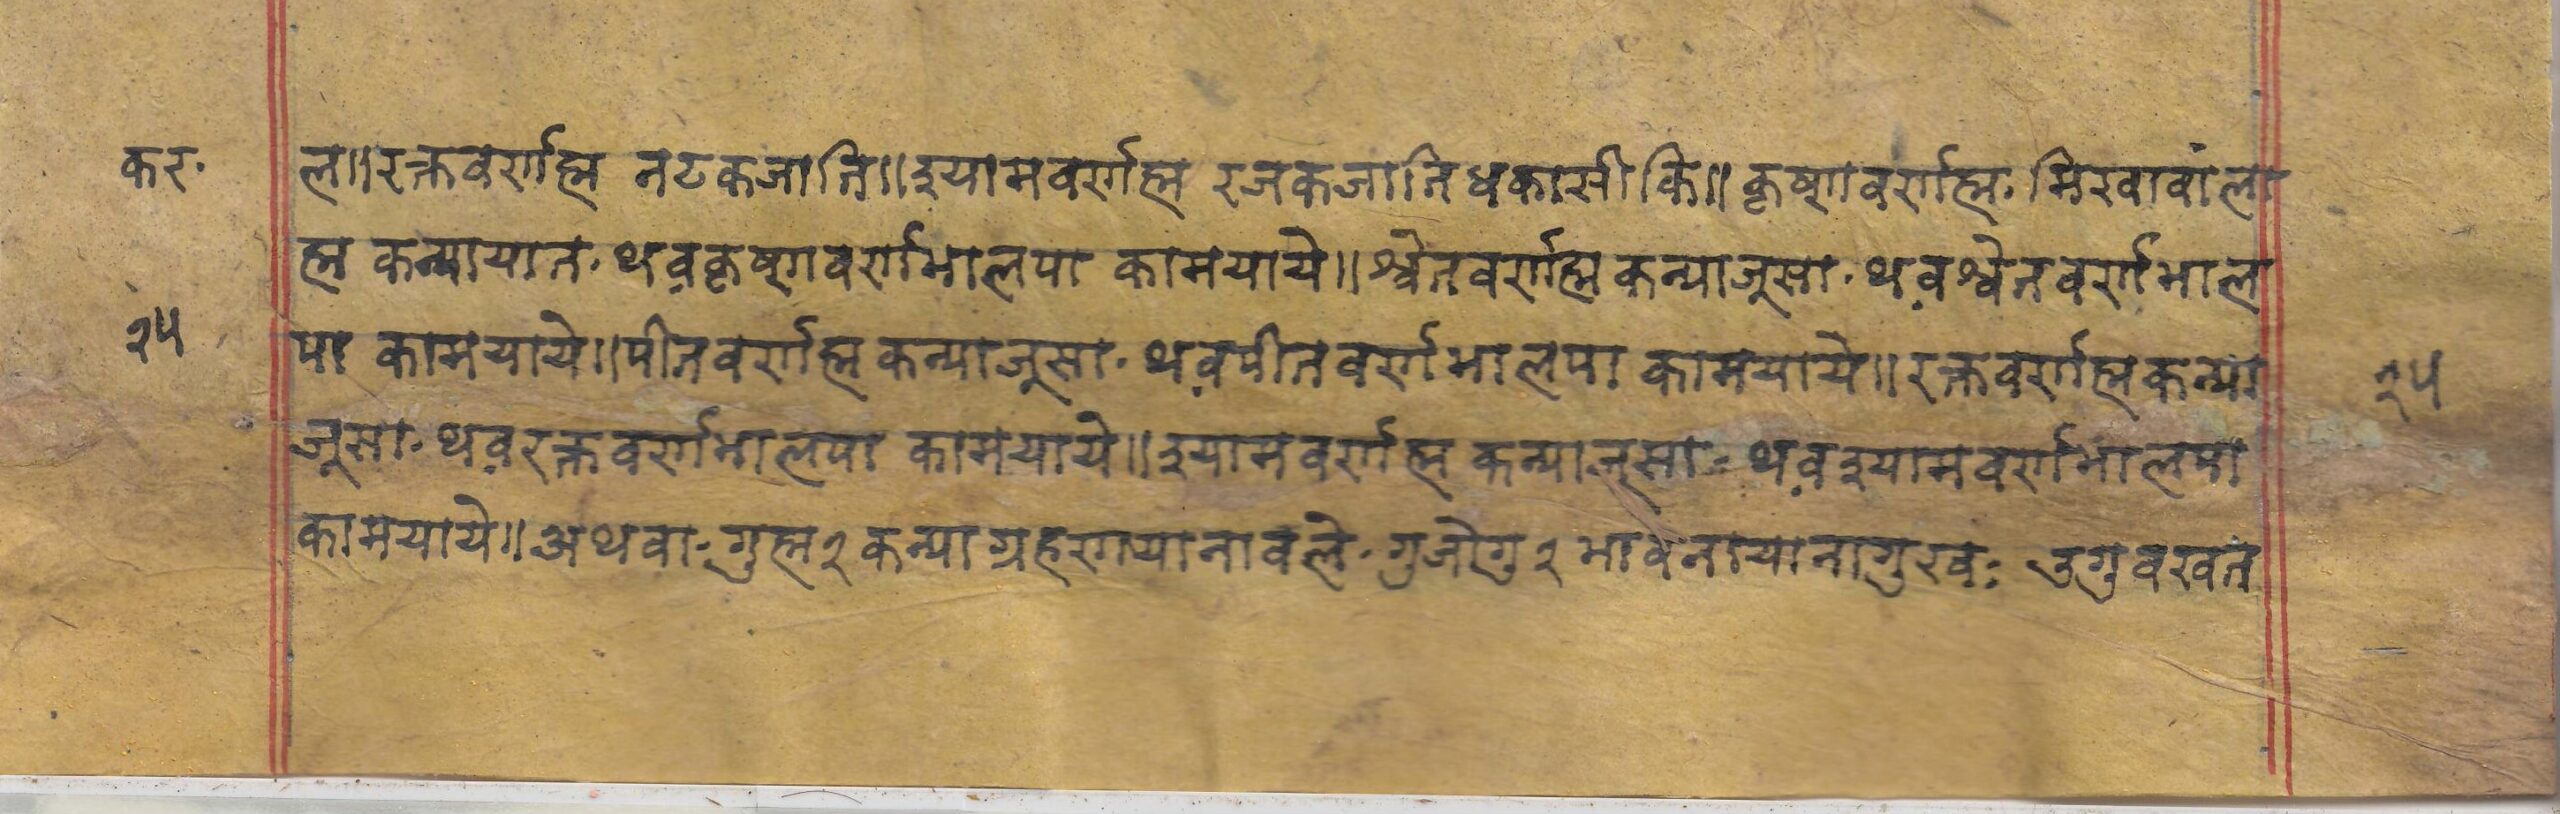 कर॰ ल॥रक्तवर्णह्म नटकजाति॥श्यामवर्णह्म रजकजातिधकासीकि॥कृष्णवर्णह्म॰मिखावांला
ह्म कन्यायात॰थव़कृष्णवर्णभालपा कामयाये॥श्वेतवर्णह्मकन्याजूसा॰थव़श्वेतवर्णभाल
२५ पा कामयाये॥पीतवर्णह्मकन्याजूसा॰थव़पीतवर्णभालपा कामयाये॥रक्तवर्णह्मकन्या २५
जूसा॰थव़रक्तवर्णभालपा कामयाये॥श्यामवर्णह्म कन्याजूसा॰थव़श्यामवर्णभालपा
कामयाये॥अथवा॰गुह्म२कन्याग्रहणयानावले॰गुजोगु२भावनायानागुखव॰उगुवखत